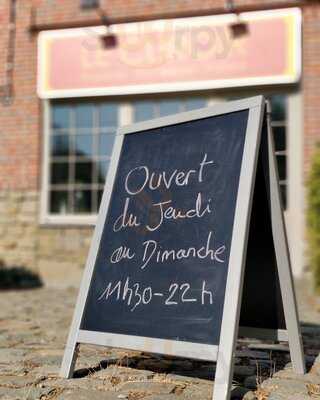 Ouvert
du Jeudi
au Dimanche
11h30-22h